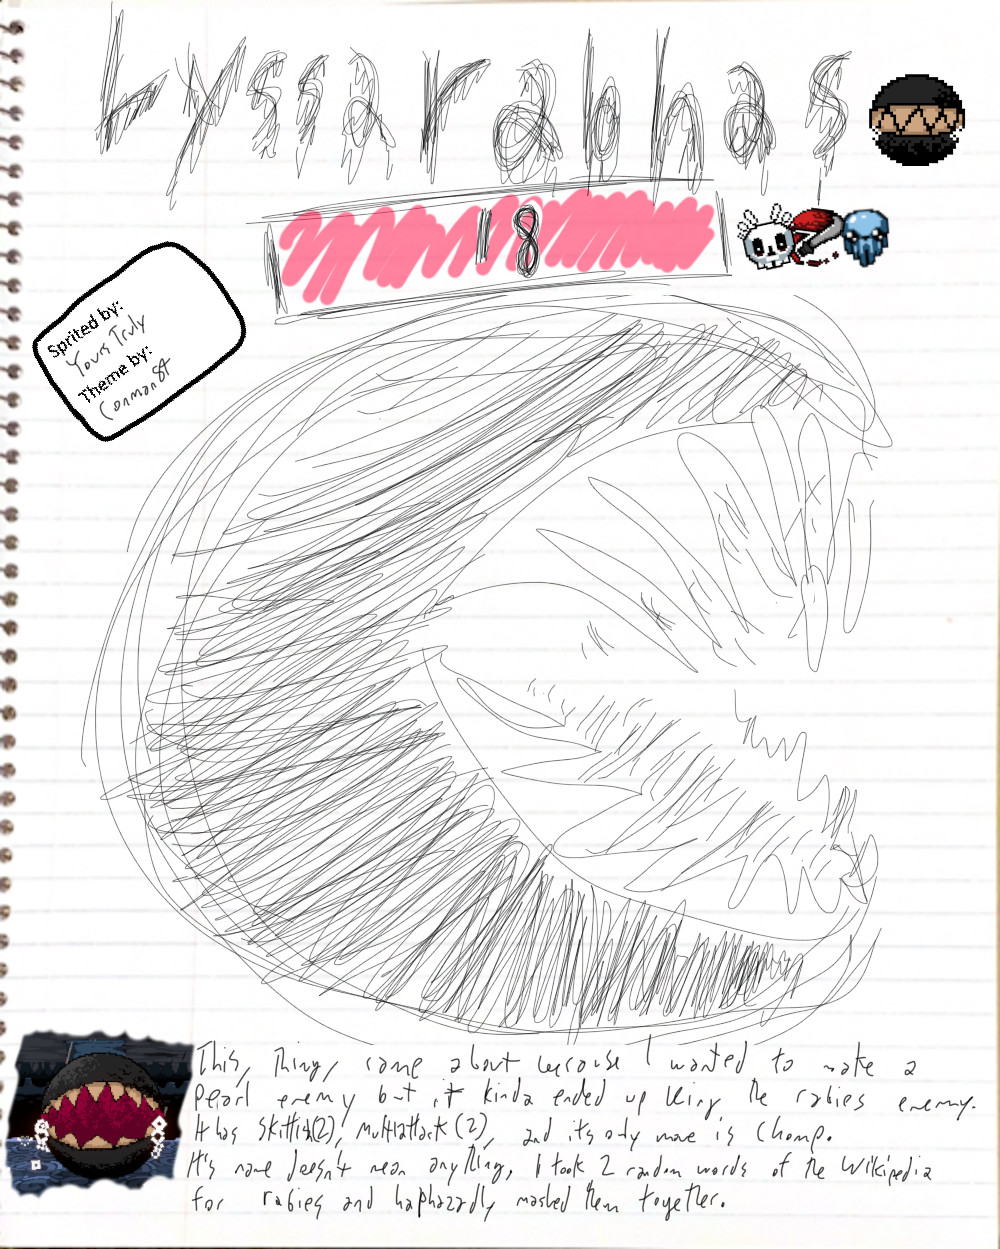 Lyssarabhas
18
Sprited by:
Yours Truly
Theme by:
Conman84
This, thing, came about because I wanted to make a
Pearl enemy but it kinda ended up being the rabies enemy.
It has Skittish(2), Multiattack(2), and its only move is Chomp.
It's name doesn't mean anything, I took 2 random words of the Wikipedia
for rabies and haphazardly mashed them together.